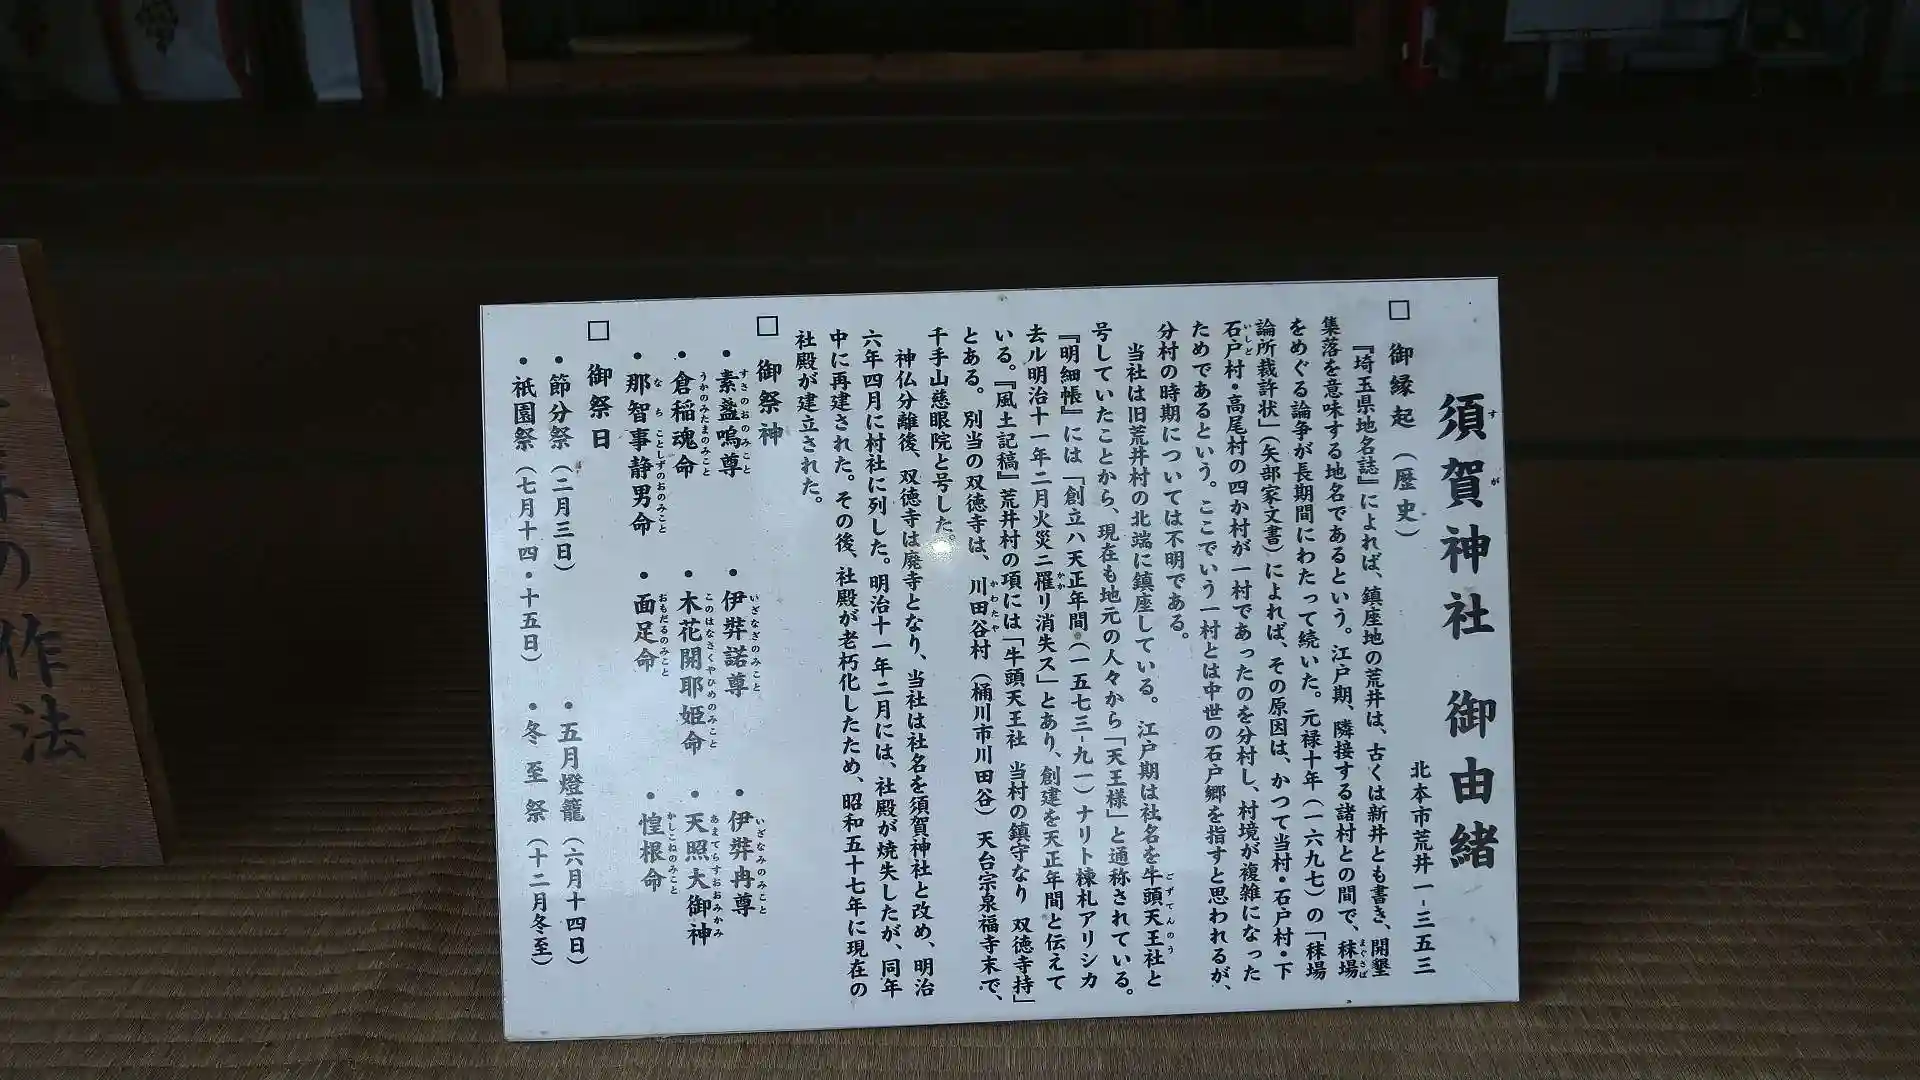 須賀神社 御由緒
北本市荒井一-三五三
□ 御縁起(歴史)
『埼玉県地名誌』によれば、鎮座地の荒井は、古くは新井とも書き、開墾
集落を意味する地名であるという。江戸期、隣接する諸村との間で、秣場
をめぐる論争が長期間にわたって続いた。元禄十年(一六九七)の「秣場
論所裁許状」(矢部家文書)によれば、その原因は、かつて当村・石戸村・下
石戸村・高尾村の四か村が一村であったのを分村し、村境が複雑になった
ためであるという。ここでいう一村とは中世の石戸郷を指すと思われるが、
分村の時期については不明である。
当社は旧荒井村の北端に鎮座している。江戸期は社名を牛頭天王社と
号していたことから、現在も地元の人々から「天王様」と通称されている。
『明細帳』には「創立ハ天正年間(一五七三-九一)ナリト棟札アリシカ
去ル明治十一年二月火災ニ罹リ消失ス」とあり、創建を天正年間と伝えて
いる。『風土記稿』荒井村の項には「牛頭天王社 当村の鎮守なり 双徳寺持」
とある。別当の双徳寺は、川田谷村(桶川市川田谷)天台宗泉福寺末で、
千手山慈眼院と号した。
神仏分離後、双徳寺は廃寺となり、当社は社名を須賀神社と改め、明治
六年四月に村社に列した。明治十一年二月には、社殿が焼失したが、同年
中に再建された。その後、社殿が老朽化したため、昭和五十七年に現在の
社殿が建立された。
□ 御祭神
・素盞嗚尊 ・伊弉諾尊 ・伊弉冉尊
・倉稲魂命 ・木花開耶姫命 ・天照大御神
・那智事静男命 ・面足命 ・惶根命
□ 御祭日
・節分祭(二月三日) ・五月燈籠(六月十四日)
・祇園祭(七月十四・十五日) ・冬至祭(十二月冬至)
の作法